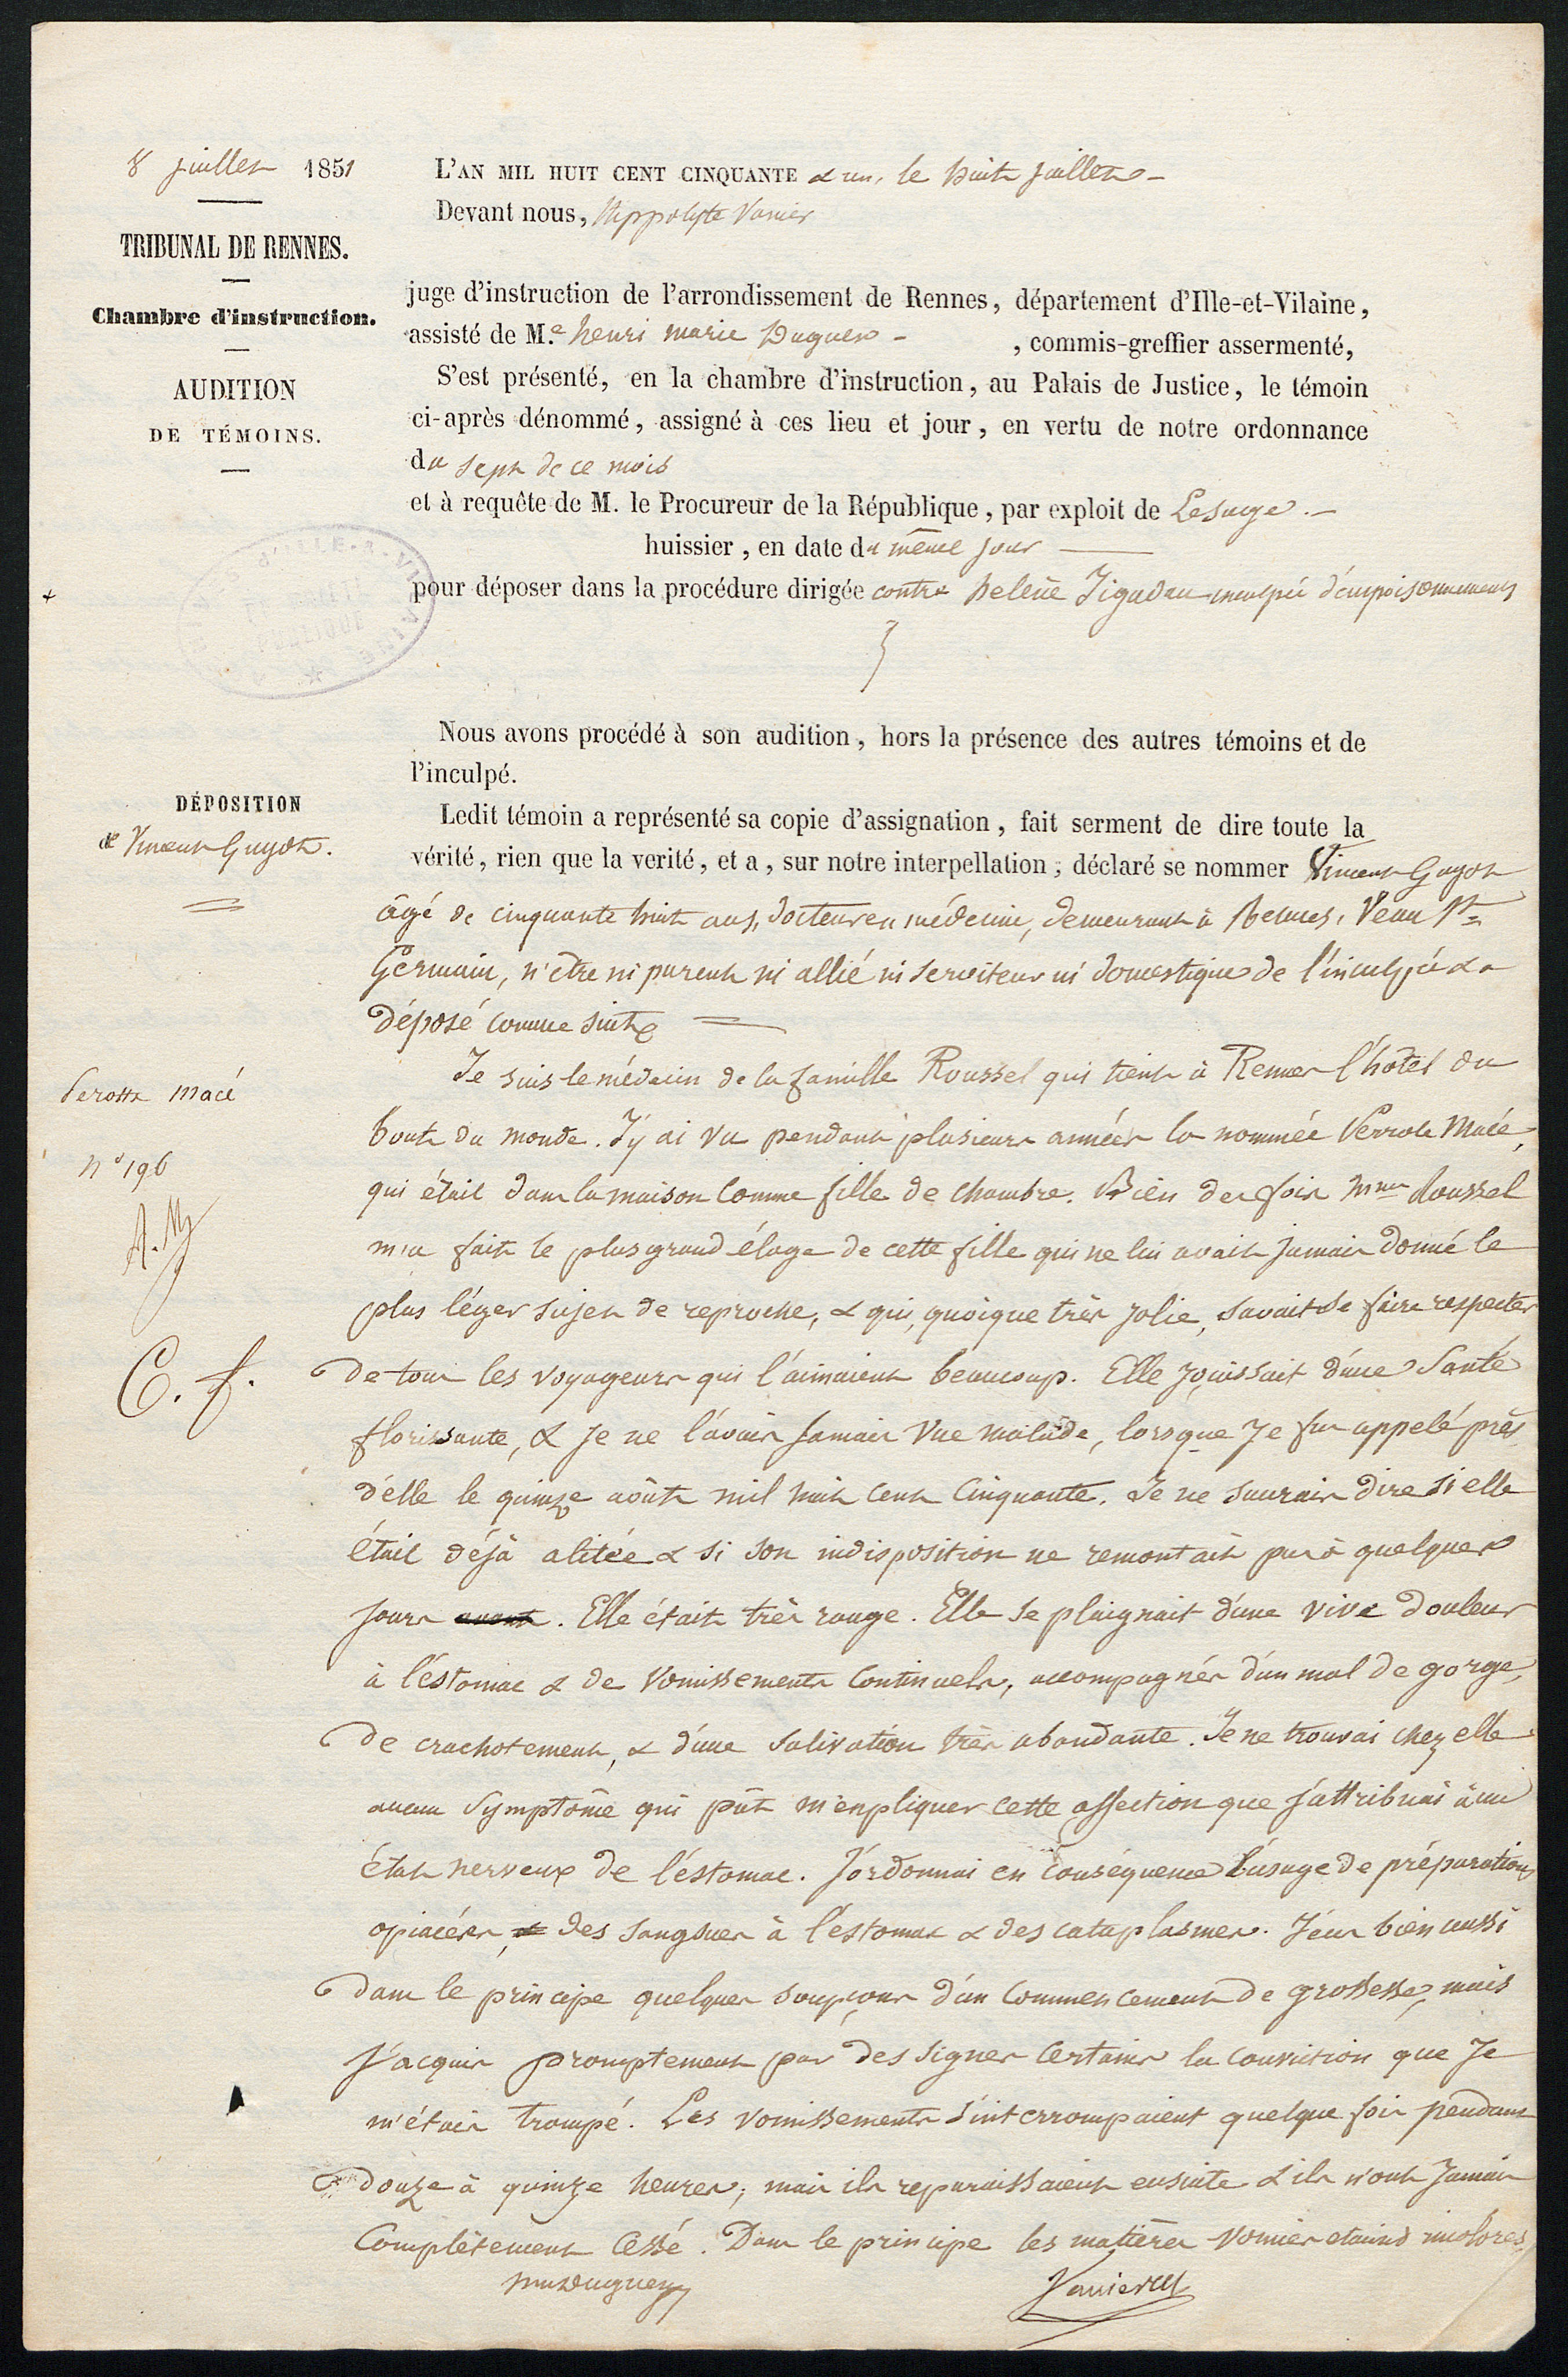 8 juillet 1851
TRIBUNAL DE RENNES.
Chambre d'instruction.
AUDITION
DE TÉMOINS.
L'AN MIL HUIT CENT CINQUANTE & un, le huit juillet -
Devant nous, Hippolyte Vanier
juge d'instruction de l'arrondissement de Rennes, département d'Ille-et-Vilaine,
assisté de M.e henri marie Duguen - , commis-greffier assermenté,
S'est présenté, en la chambre d'instruction, au Palais de Justice, le témoin
ci-après dénommé, assigné à ces lieu et jour, en vertu de notre ordonnance
du sept de ce mois
et à requête de M. le Procureur de la République, par exploit de Lesage. -
huissier, en date du même jour
pour déposer dans la procédure dirigée contre helène Jigadau inculpée d'empoisonnements
Nous avons procédé à son audition, hors la présence des autres témoins et de
l'inculpé.
DÉPOSITION
de Vincent Guyot.
Ledit témoin a représenté sa copie d'assignation, fait serment de dire toute la
vérité, rien que la verité, et a, sur notre interpellation, déclaré se nommer Vincent Guyot
âgé de cinquante huit ans, docteur en médecine, demeurant à Rennes, Veau St
Germain, n'être ni parent ni allié ni serviteur ni domestique de l'inculpée & a
déposé comme suit
Perotte Macé
n° 196
A. M
C. f.
Je suis le médecin de la famille Roussel qui tient à Rennes l'hôtel du
bout du monde. J'y ai vu pendant plusieurs années la nommée Perrote Macé,
qui était dans la maison comme fille de chambre. Bien des fois Mme Roussel
m'a fait le plus grand éloge de cette fille qui ne lui avait jamais donné le
plus léger sujet de reproche, & qui, quoique très jolie, savait se faire respecter
de tous les voyageurs qui l'aimaient beaucoup. Elle jouissait d'une santé
florissante, & je ne l'avais jamais vue malade, lorsque je fus appelé près
d'elle le quinze août mil huit cent cinquante. Je ne saurais dire si elle
était déjà alitée & si son indisposition ne remontait pas à quelques
jours avant. Elle était très rouge. Elle se plaignait d'une vive douleur
à l'estomac & de vomissements continuels, accompagnés d'un mal de gorge,
de crachotement, & d'une salivation très abondante. Je ne trouvai chez elle
aucun symptôme qui pût m'expliquer cette affection que j'attribuai à un
état nerveux de l'estomac. J'ordonnai en conséquence l'usage de préparations
opiacées, & des sangsues à l'estomac & des cataplasmes. J'eus bien aussi
dans le principe quelques soupçons d'un commencement de grossesse, mais
j'acquis promptement par des signes certains la conviction que je
m'étais trompé. Les vomissements s'interrompaient quelque fois pendant
douze à quinze heures; mais ils reparaissaient ensuite & ils n'ont jamais
complètement cessé. Dans le principe les matières vomies étaient incolores,
Vanier